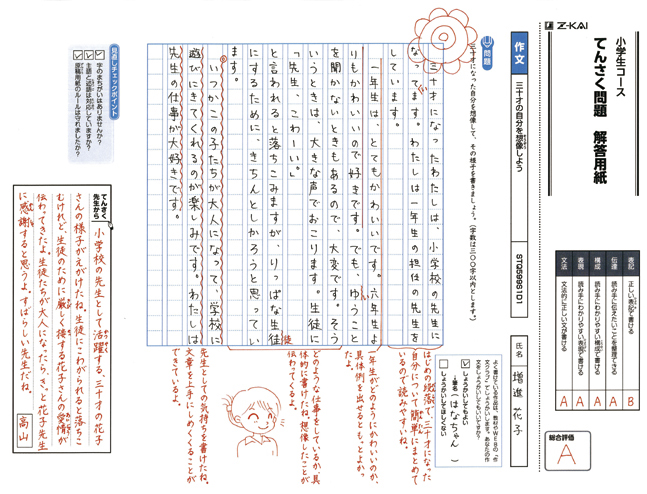 Z-KAI
小学生コース
てんさく問題 解答用紙
作文
三十才の自分を想像しよう
STQ5S9S1D1
氏名
増進花子
表記
正しい表記で書ける
B
伝達
読み手に伝えたいことを整理できる
A
構成
読み手にわかりやすい構成で書ける
A
表現
読み手にわかりやすい表現で書ける
A
文法
文法的に正しい文が書ける
A
総合評価
A
問題
三十才になった自分を想像して、その様子を書きましょう。(字数は三〇〇字以内とします。)
よく書けている作品は、教材やWEBの「作
しょうかいしてもよい
筆名(はなちゃん)
しょうかいしてほしくない
三十才になったわたしは、小学校の先生に
なってます。わたしは一年生の担任の先生を
い
しています。
一年生は、とてもかわいいです。六年生よ
りもかわいいので好きです。でも、ゆうこと
い
を聞かないときもあるので、大変です。そう
いうときは、大きな声でおこります。生徒に
「先生、こわーい。」
と言われると落ちこみますが、りっぱな生徒
徒
にするために、きちんとしかろうと思ってい
ます。
いつかこの子たちが大人になって、学校に
遊びにきてくれるのが楽しみです。わたしは
先生の仕事が大好きです。
はじめの段落で、三十才になった
自分について簡単にまとめて
いるので読みやすいね。
一年生がどのようにかわいいのか、
具体例を出せるともっとよかっ
たよ。
どのような仕事をしているか、具
体的に書けたね。想像したことが
伝わってくるよ。
先生としての気持ちを書けたね。
文章を上手にしめくくることが
できているよ。
見直しチェックポイント
字のまちがいはありませんか?
主語と述語は対応していますか?
原稿用紙のルールは守れましたか?
てんさく先生から
小学校の先生として活躍する、三十才の花子
さんの様子がえがけたね。生徒にこわがられると落ちこ
むけれど、生徒のために厳しく接する花子さんの愛情が
伝わってきたよ。生徒たちが大人になったら、きっと花子先生
に感謝すると思うよ。すばらしい先生だね。
高山